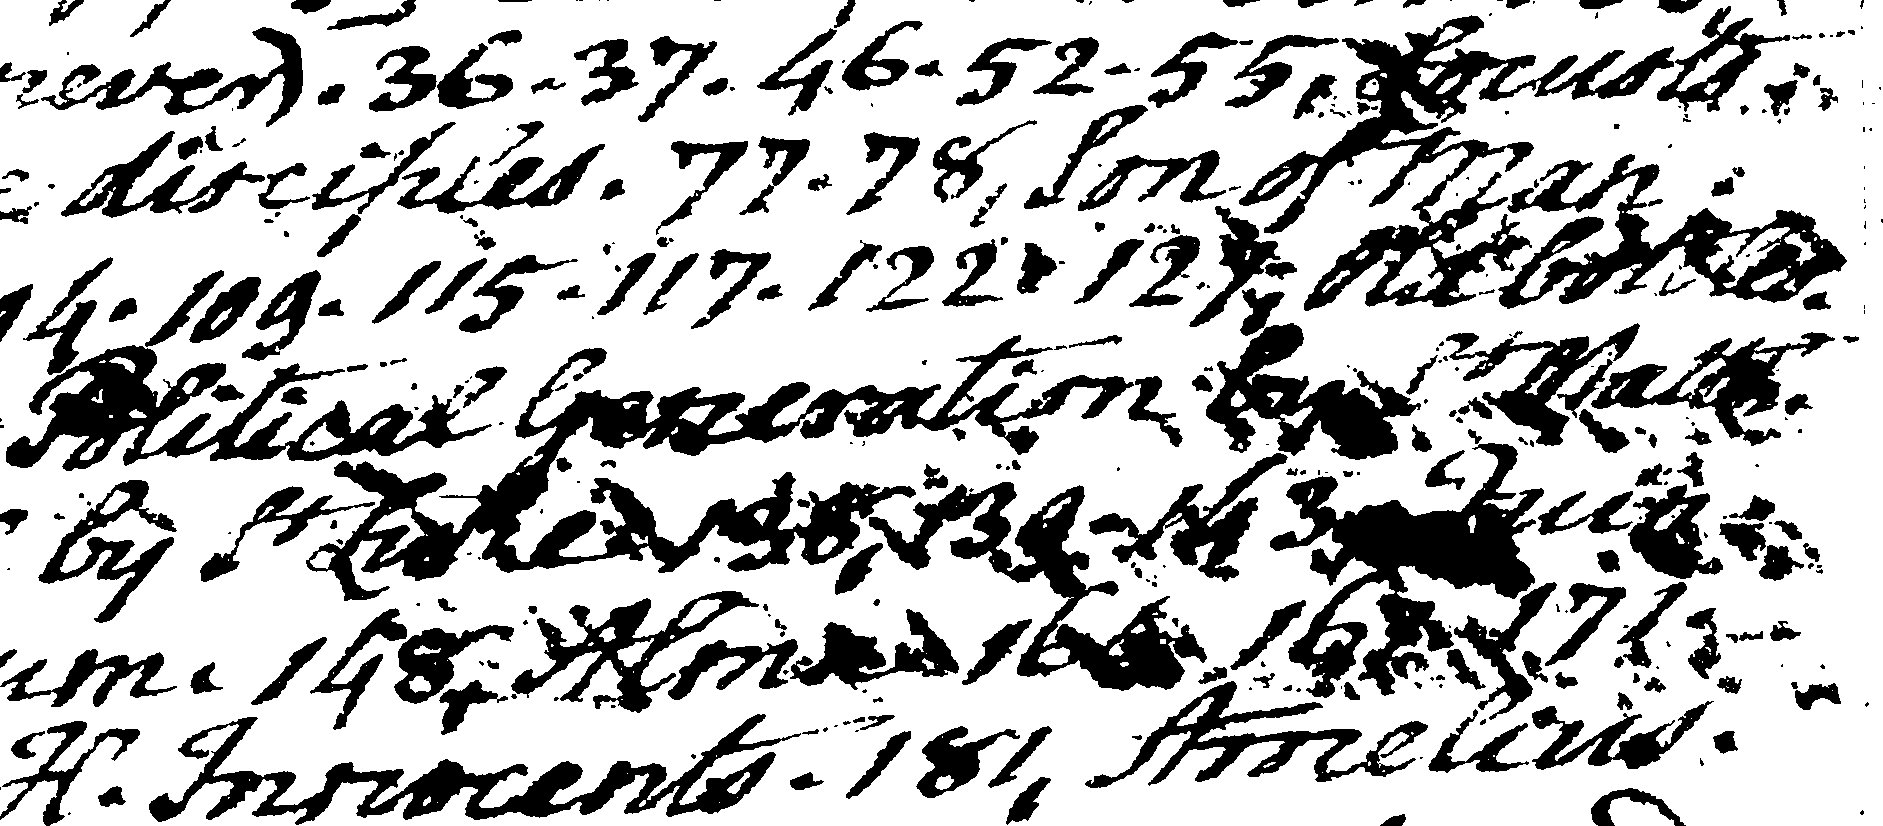 never). 36-37. 46-52-55, Locusts.
disciples. 77-78, Son of Man.
94. 109. 115-117. 122. 127, old bottles.
Political Generation by St Matt.
by St Luke. 138, 139-143. Quia
um. 148, 166. 167. 171.
H. Innocents. 181, Amelius.